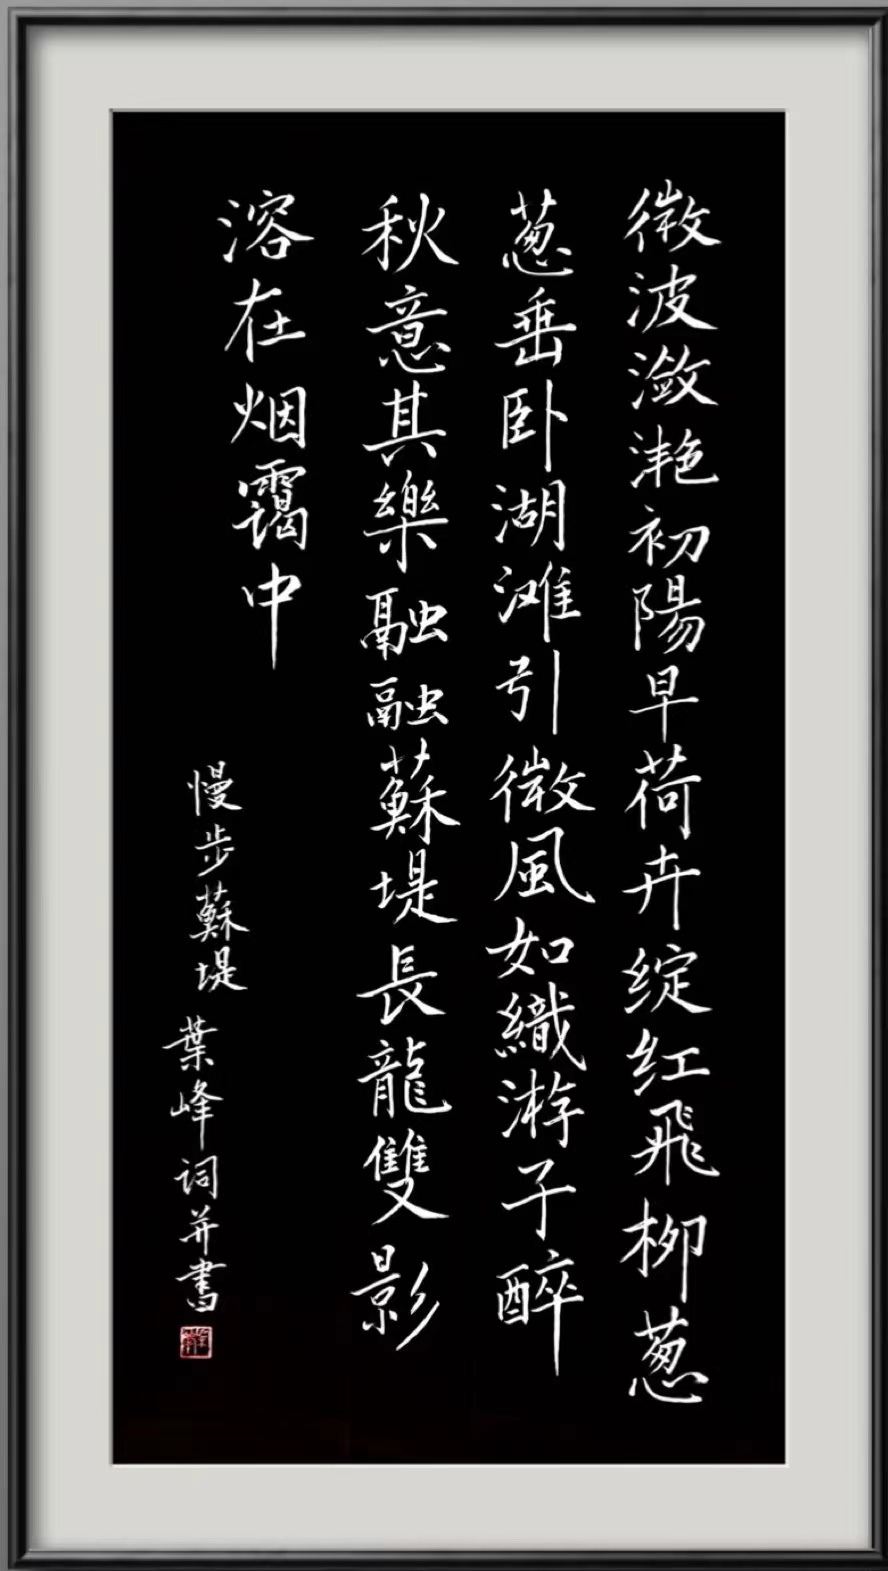 微波潋滟初陽早荷卉绽红飛柳葱
葱垂卧湖滩引微風如織游子醉
秋意其樂融融蘇堤長龍雙影
溶在烟靄中
慢步蘇堤 葉峰词并書